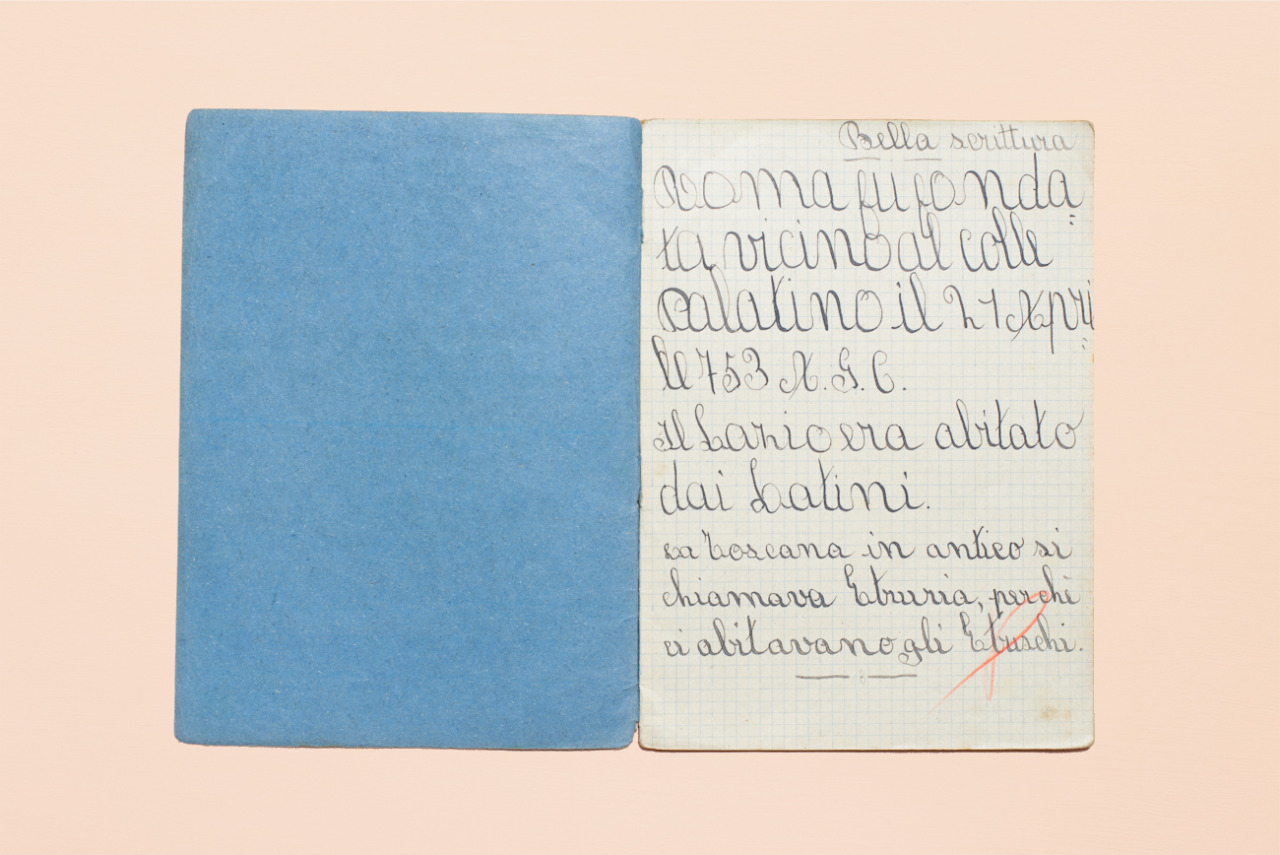 Bella scrittura
Roma fu fonda=
ta vicino al colle
Palatino il 21 Apri=
le 753 A. G. C.
Il Lazio era abitato
dai Latini.
La Toscana in antico si
chiamava Etruria, perchè
ci abitavano gli Etruschi.